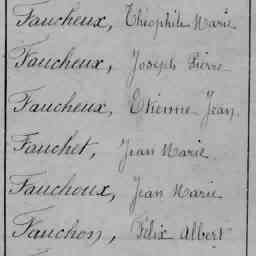 Faucheux, Théophile Marie
Faucheux, Joseph Pierre
Faucheux, Etienne Jean
Fauchet, Jean Marie
Fauchoux, Jean Marie
Fauchon, Félix Albert